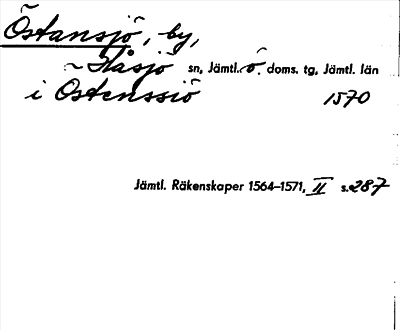 Östansjö, by,
~ Håsjö sn, Jämtl. ö. doms. tg, Jämtl. län
i Ostenssiö 1570
Jämtl. Räkenskaper 1564–1571, II s. 287